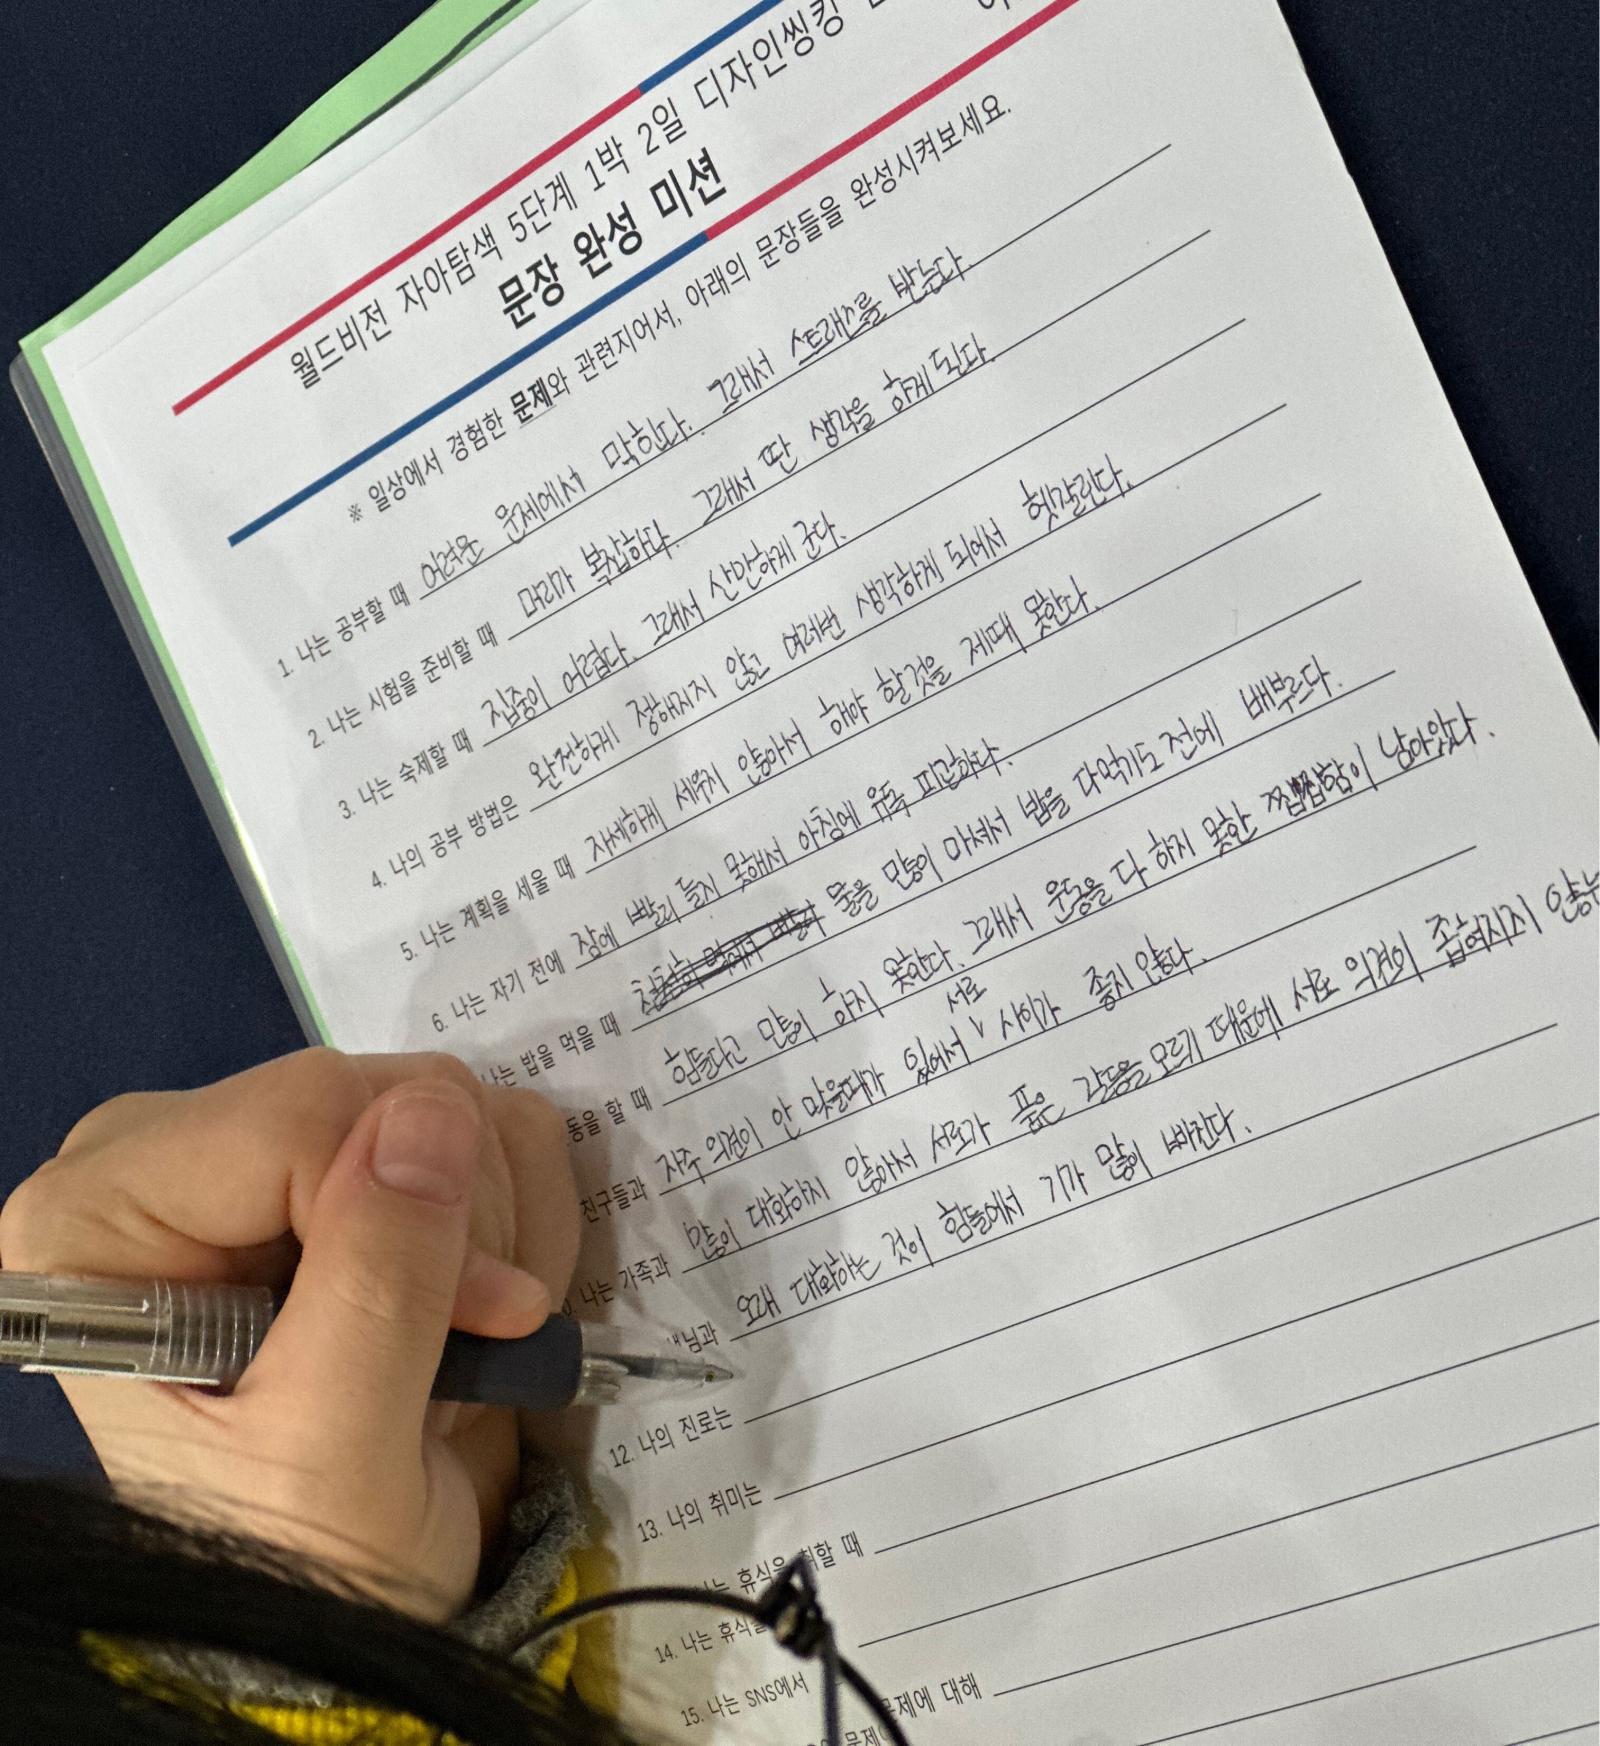 월드비전 자아탐색 5단계 1박 2일 디자인씽킹
문장 완성 미션
※ 일상에서 경험한 문제와 관련지어서, 아래의 문장들을 완성시켜보세요.
1. 나는 공부할 때 어려운 문제에서 막힌다. 그래서 스트레스를 받는다.
2. 나는 시험을 준비할 때 머리가 복잡하다. 그래서 딴 생각을 하게 된다.
3. 나는 숙제할 때 집중이 어렵다. 그래서 산만하게 군다.
4. 나의 공부 방법은 완전하게 정해지지 않고 여러번 생각하게 되어서 헷갈린다.
5. 나는 계획을 세울 때 자세하게 세우지 않아서 해야 할것을 제때 못한다.
6. 나는 자기 전에 잠에 빨리 들지 못해서 아침에 유독 피곤하다.
나는 밥을 먹을 때 물을 많이 마셔서 밥을 다먹기도 전에 배부르다.
동을 할 때 힘들다고 많이 하지 못한다. 그래서 운동을 다 하지 못한 찝찝함이 남아있다.
친구들과 자주 의견이 안 맞을때가 있어서 서로 사이가 좋지 않다.
나는 가족과 많이 대화하지 않아서 서로가 품은 갈등을 모르기 때문에 서로 의견이 좁혀지지 않는
님과 오래 대화하는 것이 힘들어서 기가 많이 빠진다.
12. 나의 진로는
13. 나의 취미는
휴식을 취할 때
14. 나는 휴식을
15. 나는 SNS에서
문제에 대해